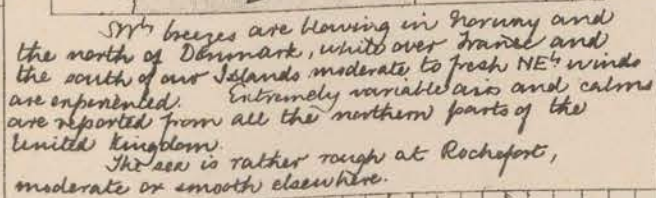 SWly breezes are blowing in Norway and
the north of Denmark, while over France and
the south of our Islands moderate to fresh NEly winds
are experienced. Extremely variable airs and calms
are reported from all the northern parts of the
United Kingdom.
The sea is rather rough at Rochefort,
moderate or smooth elsewhere.